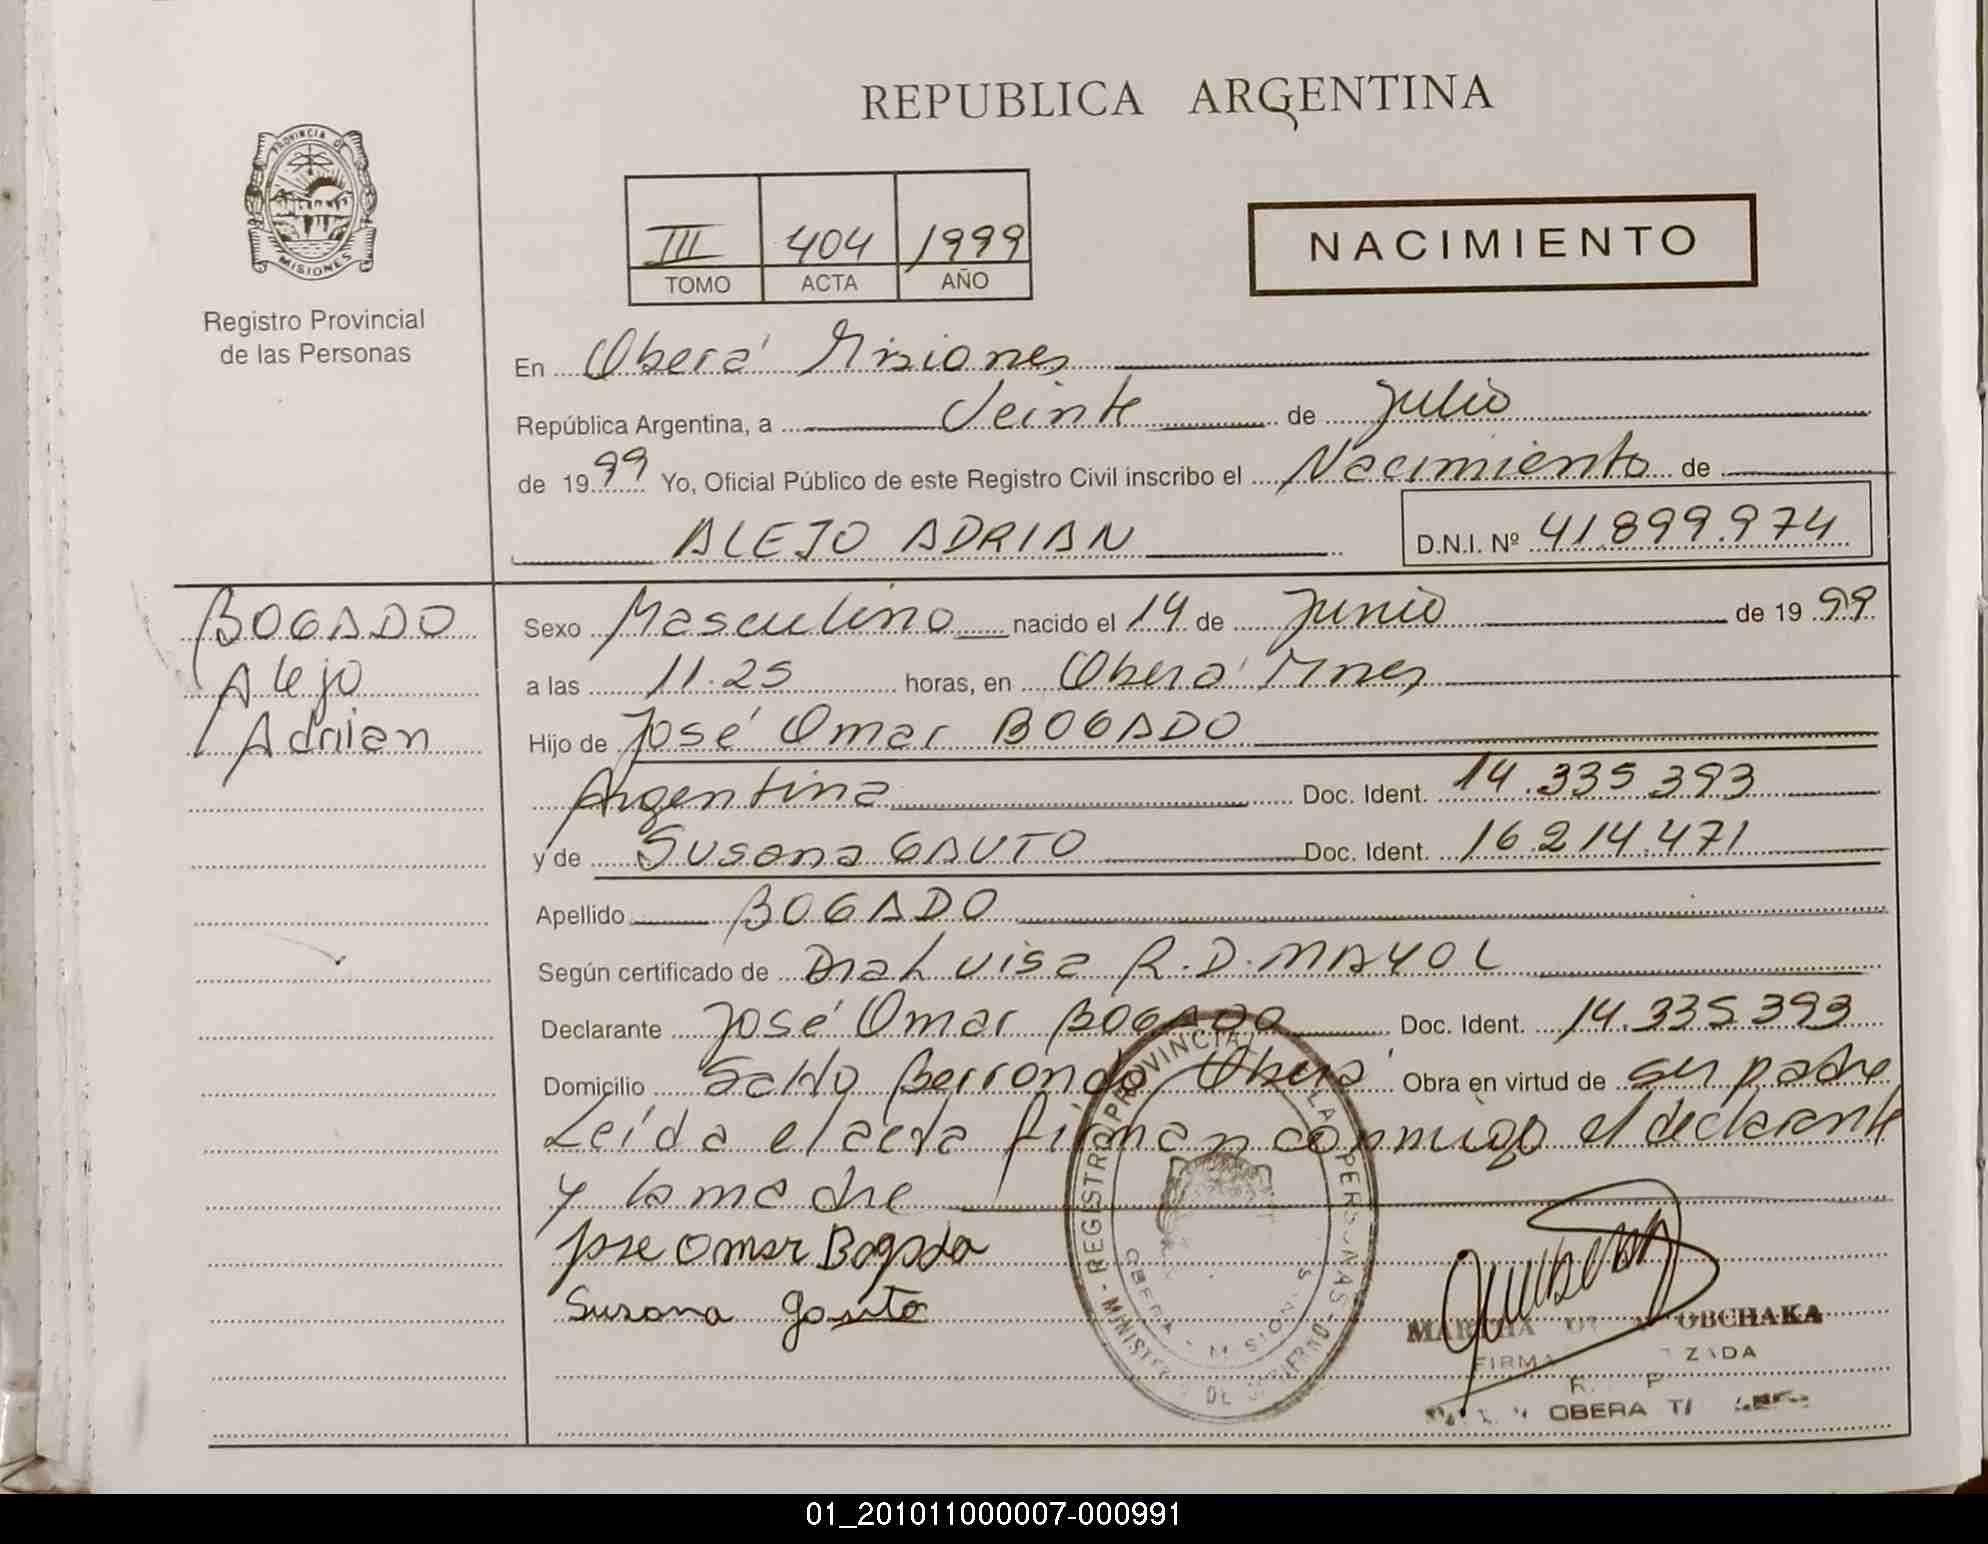 REPUBLICA ARGENTINA
PROVINCIA DE MISIONES
Registro Provincial
de las Personas
III 404 1999
TOMO ACTA AÑO
NACIMIENTO
En Oberá Misiones
República Argentina, a Veinte de Julio
de 1999 Yo, Oficial Público de este Registro Civil inscribo el Nacimiento de
ALEJO ADRIAN D.N.I. Nº 41.899.974
BOGADO
Alejo
Adrian
Sexo Masculino nacido el 14 de Junio de 1999
a las 11.25 horas, en Oberá Mnes
Hijo de José Omar BOGADO
Argentina Doc. Ident. 14.335.393
y de Susana GAUTO Doc. Ident. 16.214.471
Apellido BOGADO
Según certificado de Dra Luisa R.D. MAYOL
Declarante José Omar BOGADO Doc. Ident. 14.335.393
Domicilio Salto Berrondo Oberá Obra en virtud de ser padre
Leída el acta firman conmigo el declarante
y la madre
Jose Omar Bogado
Susana Gauto
REGISTRO PROVINCIAL DE LAS PERSONAS - MINISTERIO DE GOBIERNO -
OBERA - MISIONES
MARTHA
FIRMA
OBERA
01_201011000007-000991